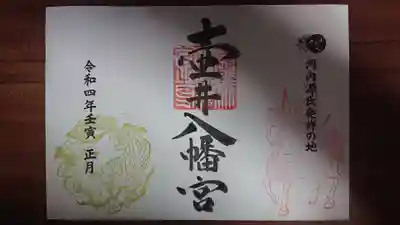 河内源氏発祥の地
壷井八幡宮
令和四年壬寅 正月